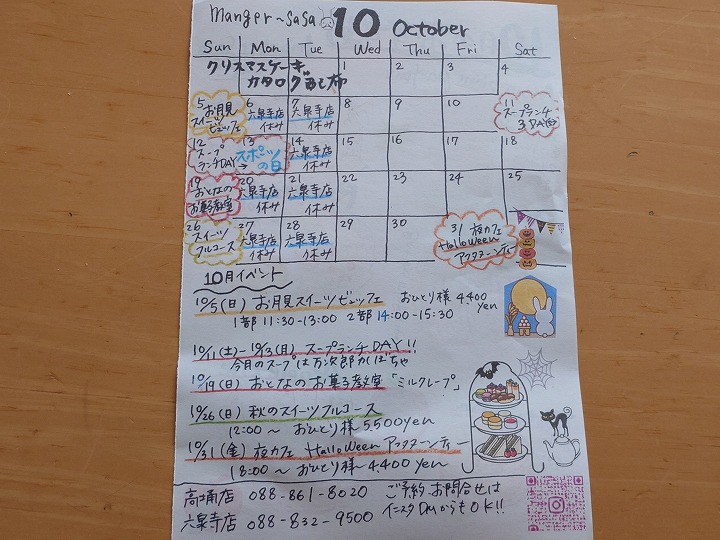 manger~SaSa 10 October
Sun Mon Tue Wed Thu Fri Sat
クリスマスケーキ
カタログ配布
1 2 3 4
5 お月見
スイーツ
ビュッフェ
6 六泉寺店
休み
7 六泉寺店
休み
8 9 10
11 スープランチ
3DAY(土)
12 スープ
ランチDAY→
13 スポーツ
の日
14 六泉寺店
休み
15 16 17 18
19 おとなの
お菓子教室
20 六泉寺店
休み
21 六泉寺店
休み
22 23 24 25
26 スイーツ
フルコース
27 六泉寺店
休み
28 六泉寺店
休み
29 30
31 夜カフェ
Halloween
アフタヌーンティー
10月イベント
10/5(日) お月見スイーツビュッフェ おひとり様 4,400yen
1部 11:30-13:00 2部 14:00-15:30
10/11(土)-10/13(月) スープランチDAY!!
今月のスープは万次郎かぼちゃ
10/19(日) おとなのお菓子教室「ミルクレープ」
10/26(日) 秋のスイーツフルコース
12:00~ おひとり様 5,500yen
10/31(金) 夜カフェ Halloween アフタヌーンティー
18:00~ おひとり様 4,400yen
高埇店 088-861-8020 ご予約、お問合せは
六泉寺店 088-832-9500 インスタDMからもOK!!